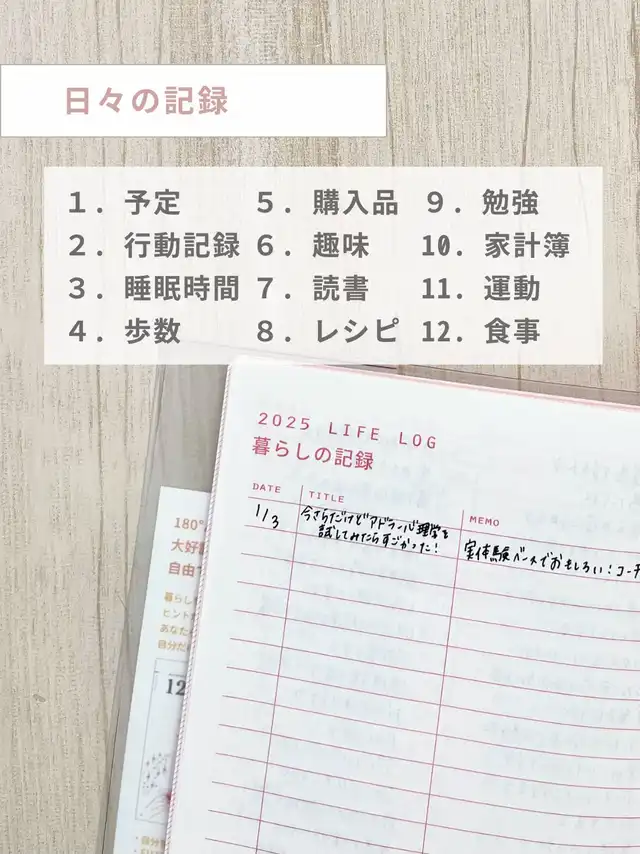 日々の記録
1. 予定
2. 行動記録
3. 睡眠時間
4. 歩数
5. 購入品
6. 趣味
7. 読書
8. レシピ
9. 勉強
10. 家計簿
11. 運動
12. 食事
2025 LIFE LOG
暮らしの記録
DATE
TITLE
MEMO
1/3
今さらだけどアドラー心理学を
試してみたらすごかった!
実体験ベースでおもしろい!コーチ
180°
大好
自由
暮らし
ヒント
あなた
自分だ
12